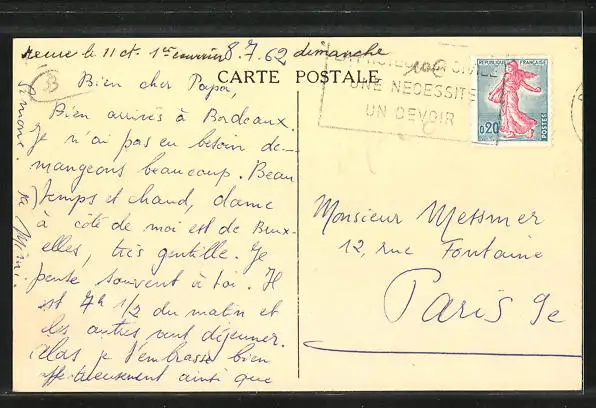 le 11 ct. 8.7.62 dimanche
B
CARTE POSTALE
CIVILE
UNE NECESSITE
UN DEVOIR
REPUBLIQUE FRANÇAISE
0,20
POSTES
Bien cher Papa,
Bien arrivés à Bordeaux.
Je n'ai pas eu besoin de
mangeons beaucoup. Beau
temps et chaud, dame
à côté de moi est de Brux-
elles, très gentille. Je
pense souvent à toi. Il
est 7h 1/2 du matin et
les autres vont déjeuner.
je t'embrasse bien
affectueusement ainsi que
Simone.
Mimi.
Monsieur Messmer
12, rue Fontaine
Paris 9e